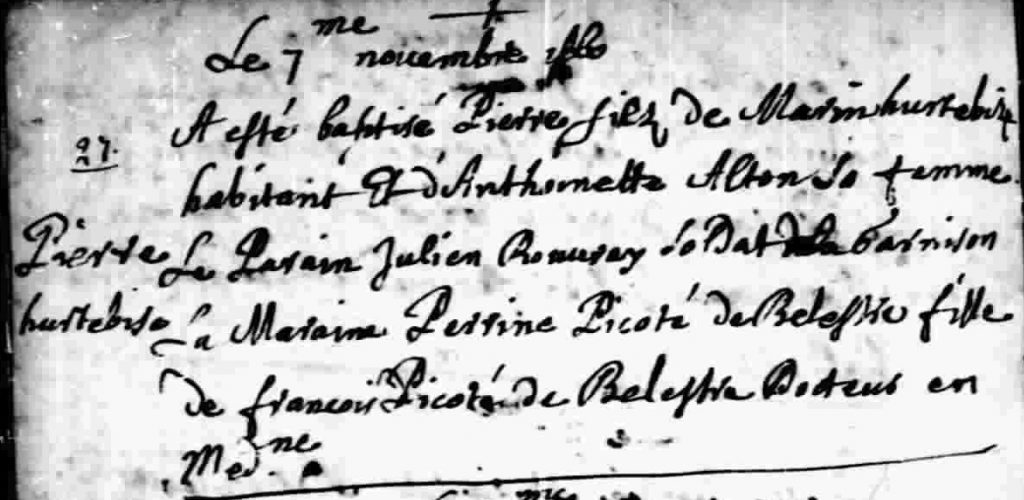 Le 7me novembre
A esté baptisé Pierre filz de Marin hurtebize
27.
habitant Et d'Anthoinette Alton sa femme.
Pierre
Le Parain Julien soldat de la Garnison
hurtebise
La Maraine Perrine Picoté de Belestre fille
de francois Picoté de Belestre Docteur en
Med.ne